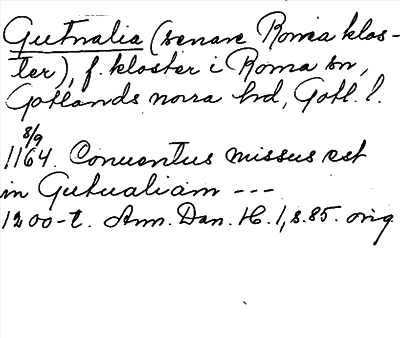 Gutnalia (senare Roma klos-
ter), f. kloster i Roma sn,
Gotlands norra hd, Gotl. l.
8/9
1164. Conuentus missus est
in Gutualiam ---
1200-t. Ann. Dan. H. 1, s. 85. orig